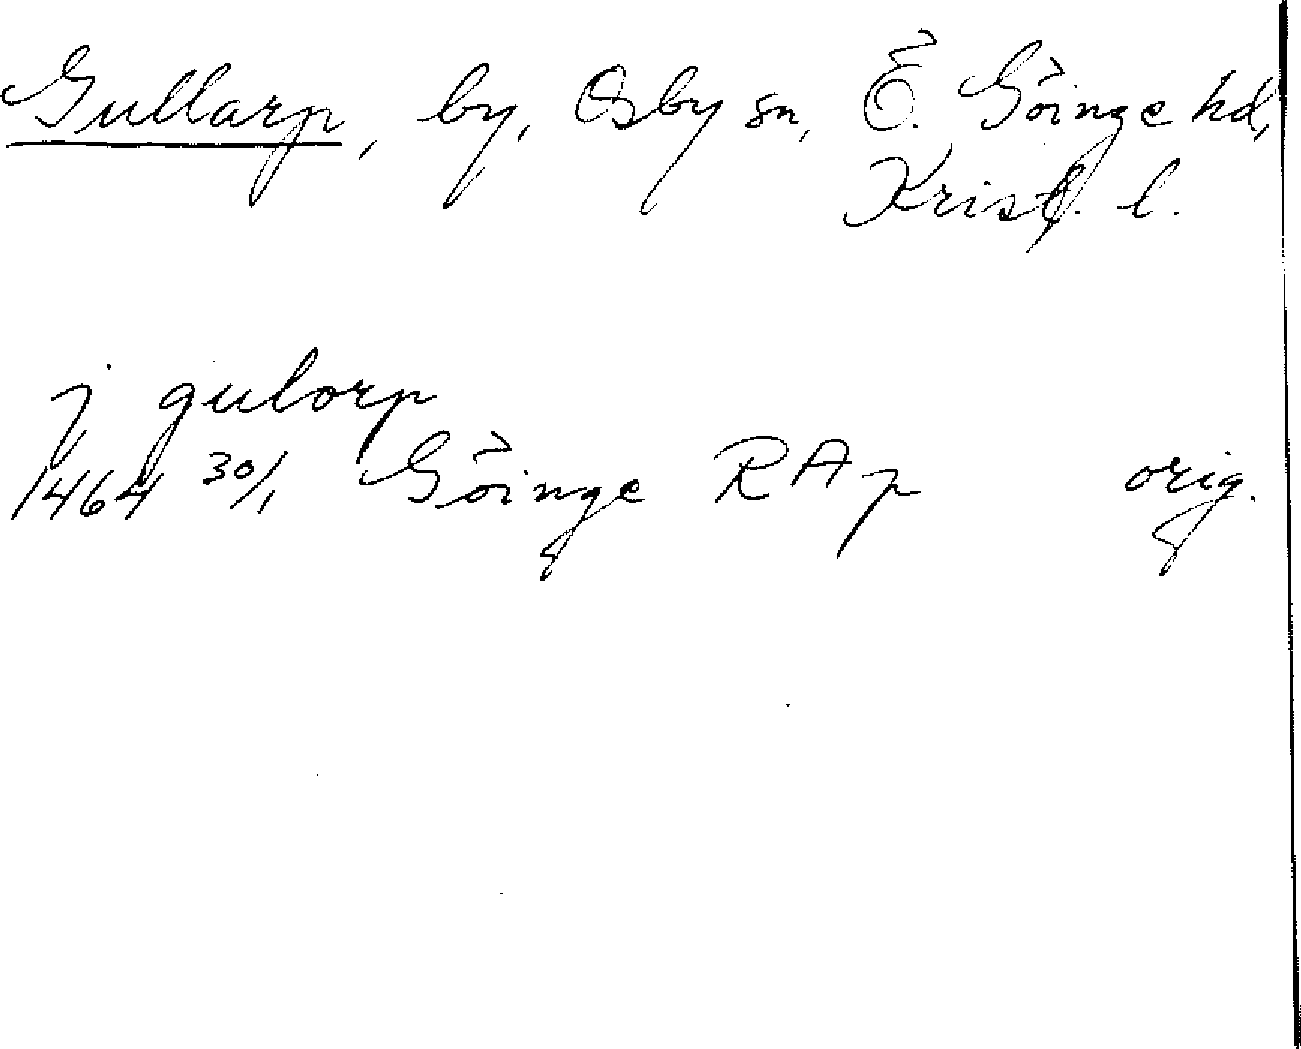 Gullarp, by, Osby sn, Ö. Göinge hd,
Krist. l.
j gulorp
1464 30/1 Göinge RAp orig.